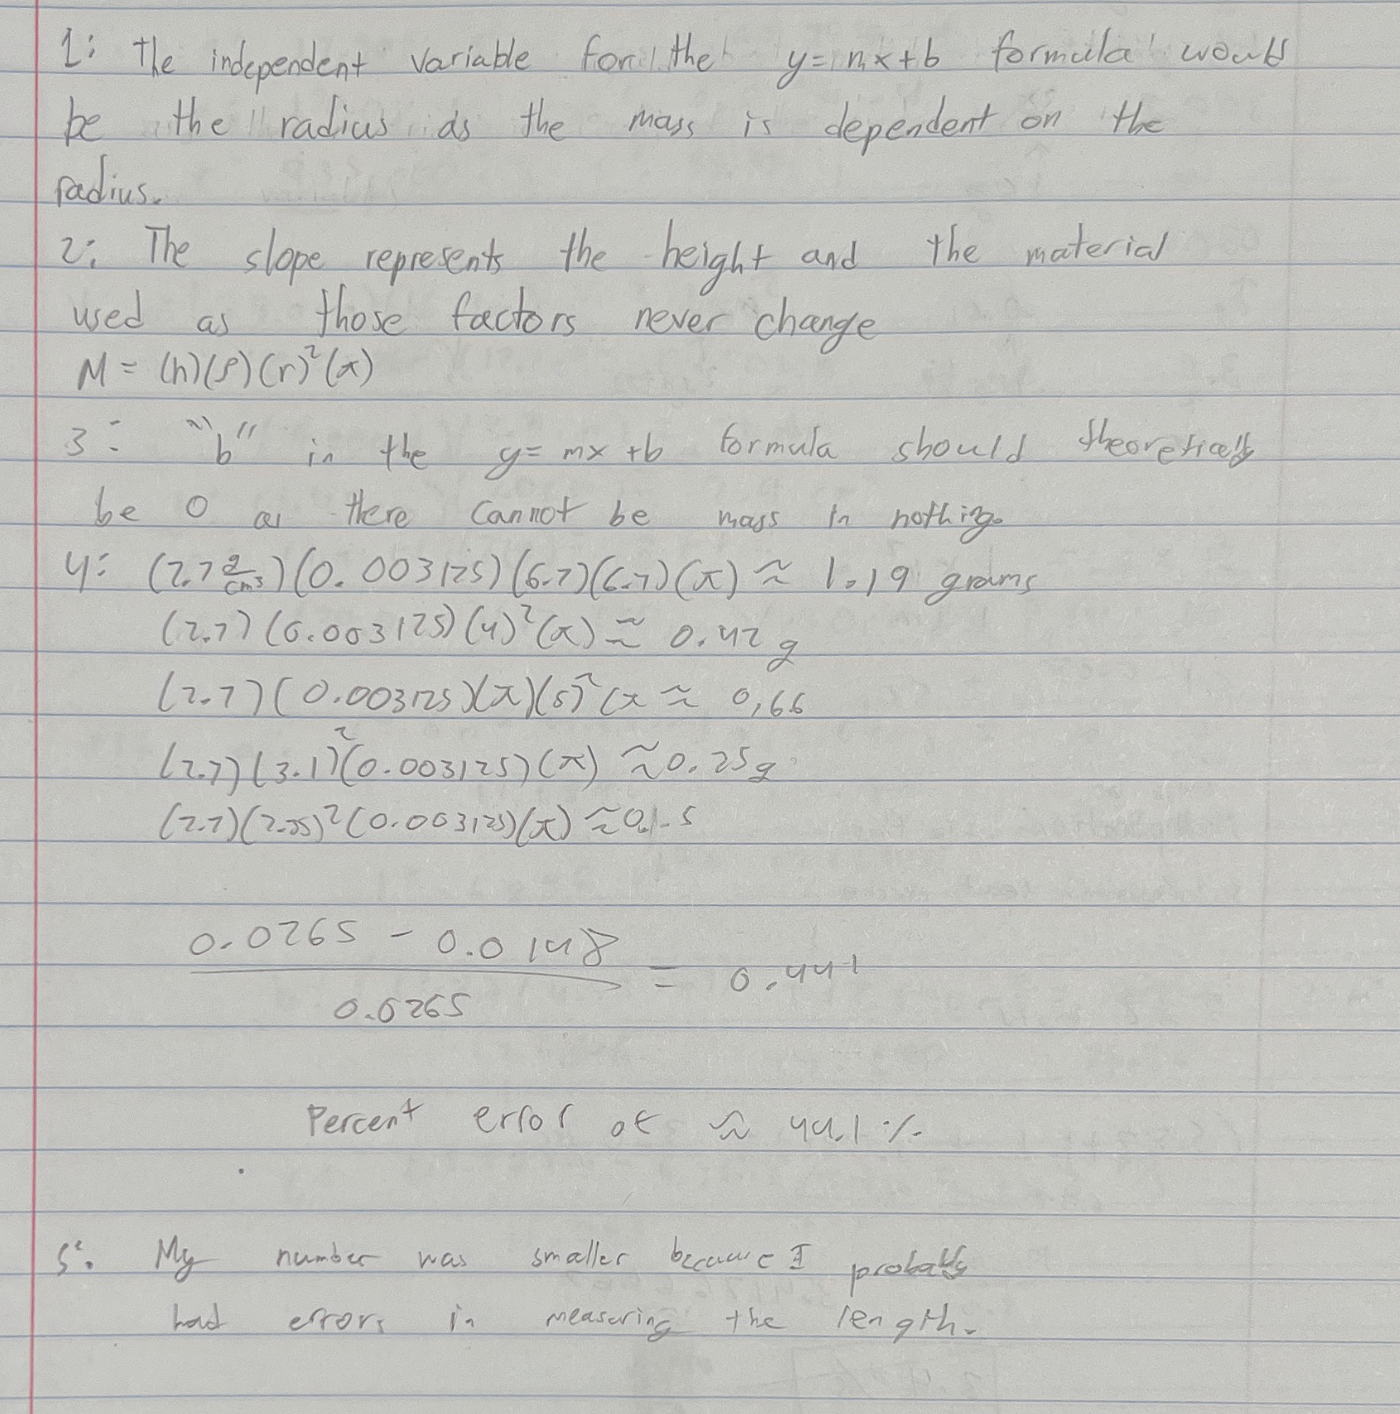 1: The independent variable for the y=mx+b formula would
be the radius as the mass is dependent on the
radius.
2: The slope represents the height and the material
used as those factors never change
M = (h)(ρ)(r)²(π)
3: "b" in the y= mx +b formula should theoretically
be 0 as there cannot be mass in nothing.
4: (2.7 g/cm³)(0.003125)(6.7)(6.7)(π) ≈ 1.19 grams
(2.7)(0.003125)(4)²(π) ≈ 0.42 g
(2.7)(0.003125)(π)(5)²(π ≈ 0.66
(2.7)(3.1)²(0.003125)(π) ≈0.25g
(2.7)(2.35)²(0.003125)(π) ≈0.15
0.0265 - 0.0148
= 0.441
0.0265
Percent error of ≈ 44.1 %
5: My number was smaller because I probably
had errors in measuring the length.